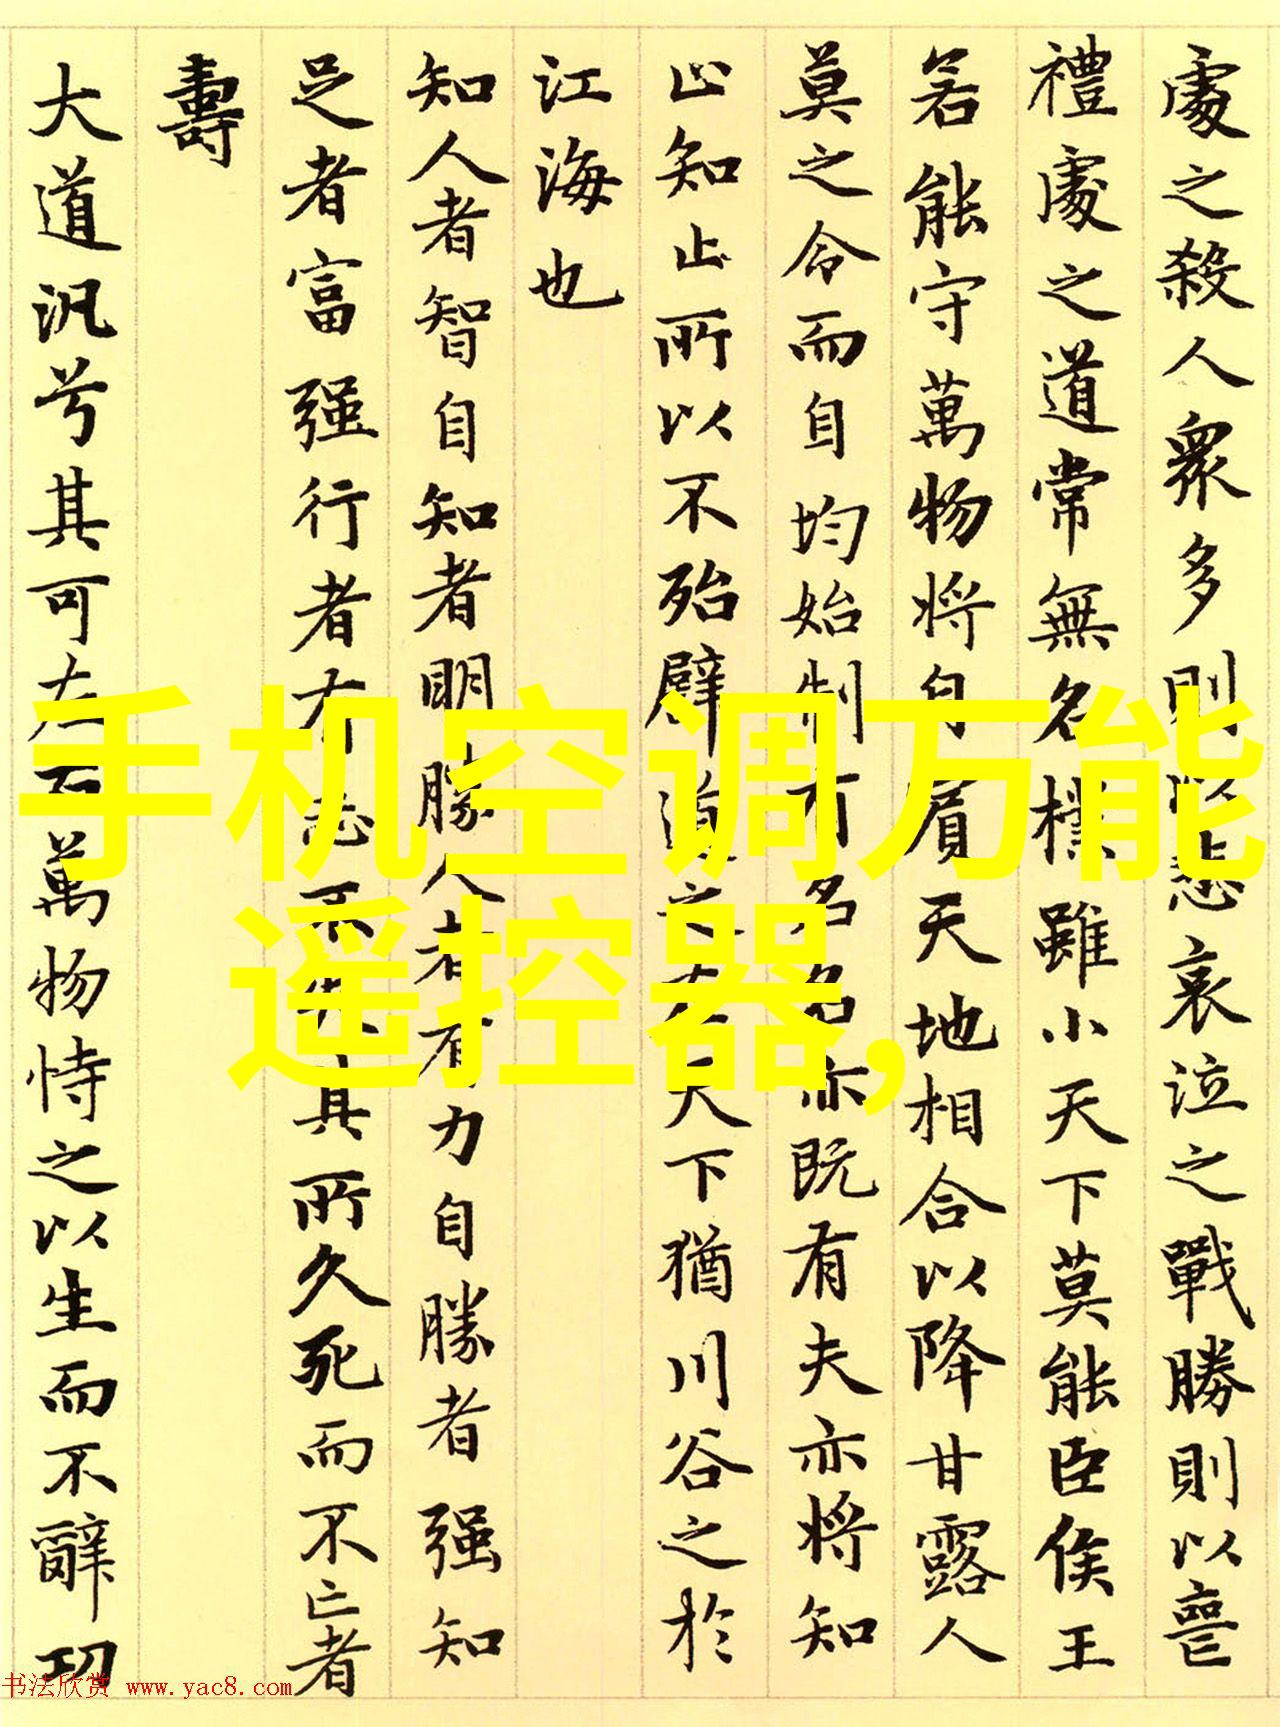 處之殺人衆多則以悲哀泣之戰勝則以喪
禮處之道常無名樸雖小天下莫能臣侯王
若能守萬物將自賓天地相合以降甘露人
莫之令而自均始制有名名亦既有夫亦將知
止知止所以不殆譬道之在天下猶川谷之於
江海也
知人者智自知者明勝人者有力自勝者强知
足者富强行者有志不失其所久死而不亡者
壽
大道汎兮其可左右萬物恃之以生而不辭功
手机空调万能
遥控器,
书法欣赏 www.yac8.com